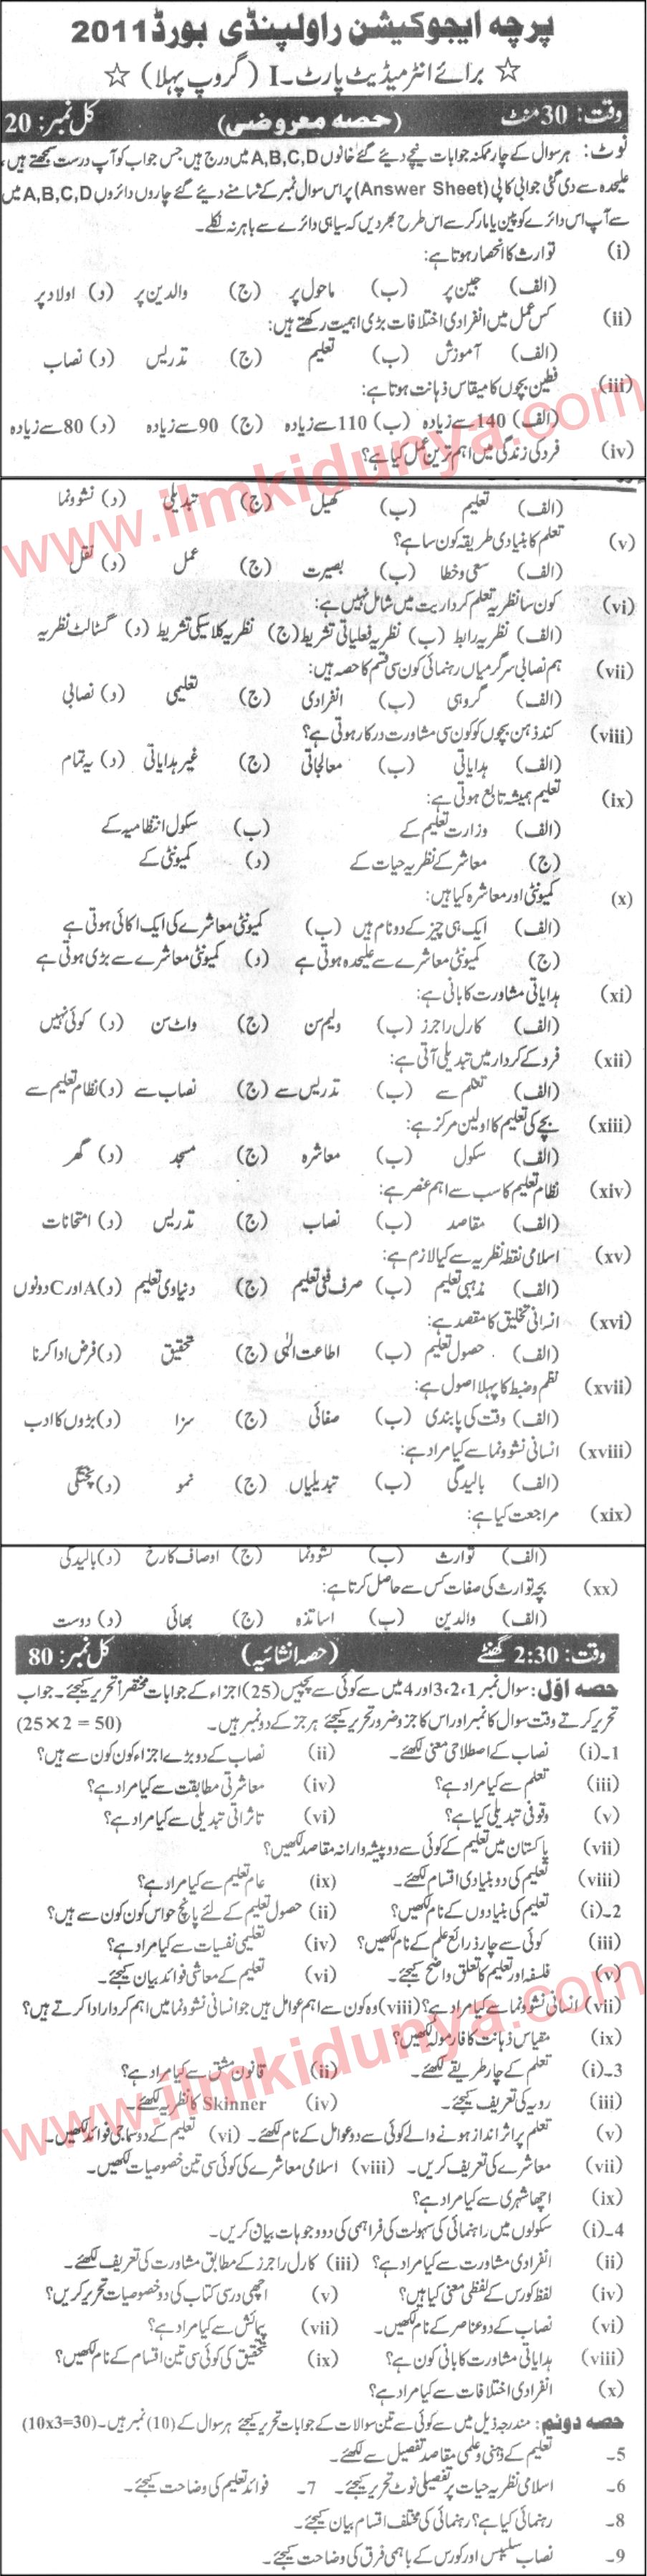 پرچہ ایجوکیشن راولپنڈی بورڈ 2011
☆ برائے انٹرمیڈیٹ پارٹ۔I (گروپ پہلا) ☆
وقت: 30 منٹ (حصہ معروضی) کل نمبر: 20
نوٹ: ہر سوال کے چار ممکنہ جوابات نیچے دیئے گئے خانوں A,B,C,D میں درج ہیں جس جواب کو آپ درست سمجھتے ہیں،
علیحدہ سے دی گئی جوابی کاپی (Answer Sheet) پر اس سوال نمبر کے سامنے دیئے گئے چاروں دائروں A,B,C,D میں
سے آپ اس دائرے کو پین یا مارکر سے اس طرح بھر دیں کہ سیاہی دائرے سے باہر نہ نکلے۔
(i) توارث کا انحصار ہوتا ہے:
(الف) جین پر (ب) ماحول پر (ج) والدین پر (د) اولاد پر
(ii) کس عمل میں انفرادی اختلافات بڑی اہمیت رکھتے ہیں:
(الف) آموزش (ب) تعلیم (ج) تدریس (د) نصاب
(iii) فطین بچوں کا مقیاس ذہانت ہوتا ہے:
(الف) 140 سے زیادہ (ب) 110 سے زیادہ (ج) 90 سے زیادہ (د) 80 سے زیادہ
(iv) فرد کی زندگی میں اہم ترین عمل کیا ہے؟
(الف) تعلیم (ب) کھیل (ج) تبدیلی (د) نشوونما
(v) تعلم کا بنیادی طریقہ کون سا ہے؟
(الف) سعی و خطا (ب) بصیرت (ج) عمل (د) نقل
(vi) کون سا نظریہ تعلم کرداریت میں شامل نہیں ہے:
(الف) نظریہ رابط (ب) نظریہ فعلیاتی تشریط (ج) نظریہ کلاسیکی تشریط (د) گسٹالٹ نظریہ
(vii) ہم نصابی سرگرمیاں رہنمائی کون سی قسم کا حصہ ہیں:
(الف) گروہی (ب) انفرادی (ج) تعلیمی (د) نصابی
(viii) کند ذہن بچوں کو کون سی مشاورت درکار ہوتی ہے؟
(الف) ہدایاتی (ب) معالجاتی (ج) غیر ہدایاتی (د) یہ تمام
(ix) تعلیم ہمیشہ تابع ہوتی ہے:
(الف) وزارت تعلیم کے (ب) سکول انتظامیہ کے
(ج) معاشر کے نظریہ حیات کے (د) کمیونٹی کے
(x) کمیونٹی اور معاشرہ کیا ہیں:
(الف) ایک ہی چیز کے دو نام ہیں (ب) کمیونٹی معاشرے کی ایک اکائی ہوتی ہے
(ج) کمیونٹی معاشرے سے علیحدہ ہوتی ہے (د) کمیونٹی معاشرے سے بڑی ہوتی ہے
(xi) ہدایاتی مشاورت کا بانی ہے:
(الف) کارل راجرز (ب) ولیم سن (ج) واٹ سن (د) کوئی نہیں
(xii) فرد کے کردار میں تبدیلی آتی ہے:
(الف) تعلم سے (ب) تدریس سے (ج) نصاب سے (د) نظام تعلیم سے
(xiii) بچے کی تعلیم کا اولین مرکز ہے:
(الف) سکول (ب) معاشرہ (ج) مسجد (د) گھر
(xiv) نظام تعلیم کا سب سے اہم عنصر ہے:
(الف) مقاصد (ب) نصاب (ج) تدریس (د) امتحانات
(xv) اسلامی نقطہ نظریہ سے کیا لازم ہے:
(الف) مذہبی تعلیم (ب) صرف فنی تعلیم (ج) دنیاوی تعلیم (د) A اور C دونوں
(xvi) انسانی تخلیق کا مقصد ہے:
(الف) حصول تعلیم (ب) اطاعت الٰہی (ج) تحقیق (د) فرض ادا کرنا
(xvii) نظم و ضبط کا پہلا اصول ہے:
(الف) وقت کی پابندی (ب) صفائی (ج) سزا (د) بڑوں کا ادب
(xviii) انسانی نشوونما سے کیا مراد ہے:
(الف) بالیدگی (ب) تبدیلیاں (ج) نمو (د) پختگی
(xix) مراجعت کیا ہے:
(الف) توارث (ب) نشوونما (ج) اوصاف کا رخ (د) بالیدگی
(xx) بچہ توارث کی صفات کس سے حاصل کرتا ہے:
(الف) والدین (ب) اساتذہ (ج) بھائی (د) دوست
وقت: 2:30 گھنٹے (حصہ انشائیہ) کل نمبر: 80
حصہ اوّل: سوال نمبر 1، 2، 3 اور 4 میں سے کوئی سے پچیس (25) اجزاء کے جوابات مختصراً تحریر کیجئے۔ جواب
تحریر کرتے وقت سوال کا نمبر اور اس کا جز و ضرور تحریر کیجئے ہر جز کے دو نمبر ہیں۔ (25×2=50)
1۔(i) نصاب کے اصطلاحی معنی لکھئے۔ (ii) نصاب کے دو بڑے اجزاء کون کون سے ہیں؟
(iii) تعلم سے کیا مراد ہے؟ (iv) معاشرتی مطابقت سے کیا مراد ہے؟
(v) وقوفی تبدیلی کیا ہے؟ (vi) تاثراتی تبدیلی سے کیا مراد ہے؟
(vii) پاکستان میں تعلیم کے کوئی سے دو پیشہ وارانہ مقاصد لکھیں؟
(viii) تعلیم کی دو بنیادی اقسام لکھئے۔ (ix) عام تعلیم سے کیا مراد ہے؟
2۔(i) تعلیم کی بنیادوں کے نام لکھیں؟ (ii) حصول تعلیم کے لئے پانچ حواس کون کون سے ہیں؟
(iii) کوئی سے چار ذرائع علم کے نام لکھیں؟ (iv) تعلیمی نفسیات سے کیا مراد ہے؟
(v) فلسفہ اور تعلیم کا تعلق واضح کیجئے۔ (vi) تعلیم کے معاشی فوائد بیان کیجئے۔
(vii) انسانی نشوونما سے کیا مراد ہے؟ (viii) وہ کون سے اہم عوامل ہیں جو انسانی نشوونما میں اہم کردار ادا کرتے ہیں؟
(ix) مقیاس ذہانت کا فارمولہ لکھیں؟
3۔(i) تعلم کے چار طریقے لکھئے۔ (ii) قانون مشق سے کیا مراد ہے؟
(iii) رویہ کی تعریف کیجئے۔ (iv) Skinner کا نظریہ لکھئے۔
(v) تعلم پر اثر انداز ہونے والے کوئی سے دو عوامل کے نام لکھئے۔ (vi) تعلیم کے دو سماجی فوائد لکھیں۔
(vii) معاشرے کی تعریف کریں۔ (viii) اسلامی معاشرے کی کوئی سی تین خصوصیات لکھیں۔
(ix) اچھا شہری سے کیا مراد ہے؟
4۔(i) سکولوں میں راہنمائی کی سہولت کی فراہمی کی دو وجوہات بیان کریں۔
(ii) انفرادی مشاورت سے کیا مراد ہے؟ (iii) کارل راجرز کے مطابق مشاورت کی تعریف لکھئے۔
(iv) لفظ کورس کے لفظی معنی کیا ہیں؟ (v) اچھی درسی کتاب کی دو خصوصیات تحریر کریں؟
(vi) نصاب کے دو عناصر کے نام لکھیں۔ (vii) پیمائش سے کیا مراد ہے؟
(viii) ہدایاتی مشاورت کا بانی کون ہے؟ (ix) تحقیق کی کوئی سی تین اقسام کے نام لکھیں؟
(x) انفرادی اختلافات سے کیا مراد ہے؟
حصہ دوئم: مندرجہ ذیل میں سے کوئی سے تین سوالات کے جوابات تحریر کیجئے ہر سوال کے (10) نمبر ہیں۔ (10x3=30)
5۔ تعلیم کے ذہنی و علمی مقاصد تفصیل سے لکھئے۔
6۔ اسلامی نظریہ حیات پر تفصیلی نوٹ تحریر کیجئے۔ 7۔ فوائد تعلیم کی وضاحت کیجئے۔
8۔ رہنمائی کیا ہے؟ رہنمائی کی مختلف اقسام بیان کیجئے۔
9۔ نصاب سلیبس اور کورس کے باہمی فرق کی وضاحت کیجئے۔
www.ilmkidunya.com
www.ilmkidunya.com